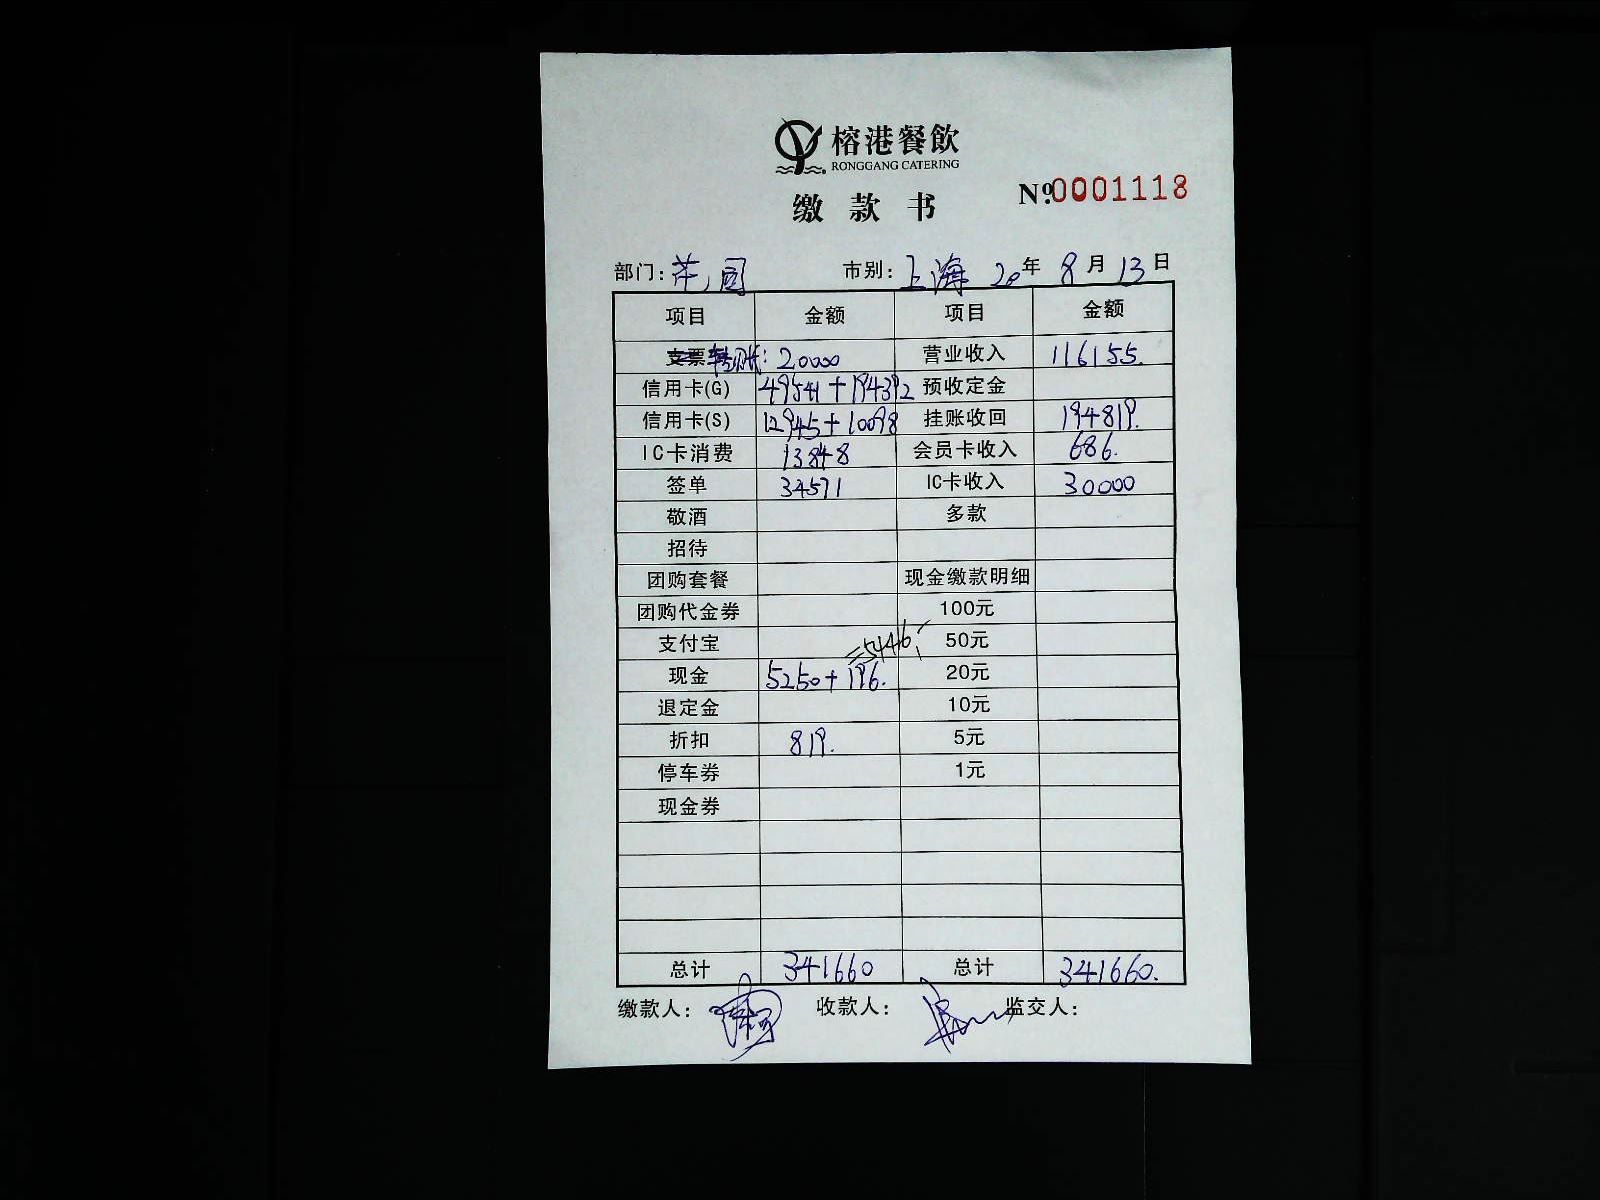 榕港餐飲
RONGGANG CATERING
缴款书
№0001118
部门：花园 市别：上海 20年 8月 13日
项目 金额 项目 金额
支票转账：20000 营业收入 116155.
信用卡(G) 49541+194392 预收定金
信用卡(S) 12945+10098 挂账收回 194819.
IC卡消费 13848 会员卡收入 686.
签单 34571 IC卡收入 30000
敬酒 多款
招待
团购套餐 现金缴款明细
团购代金券 100元
支付宝 =5446. 50元
现金 5250+196. 20元
退定金 10元
折扣 819. 5元
停车券 1元
现金券
总计 341660 总计 341660.
缴款人： 收款人： 监交人：